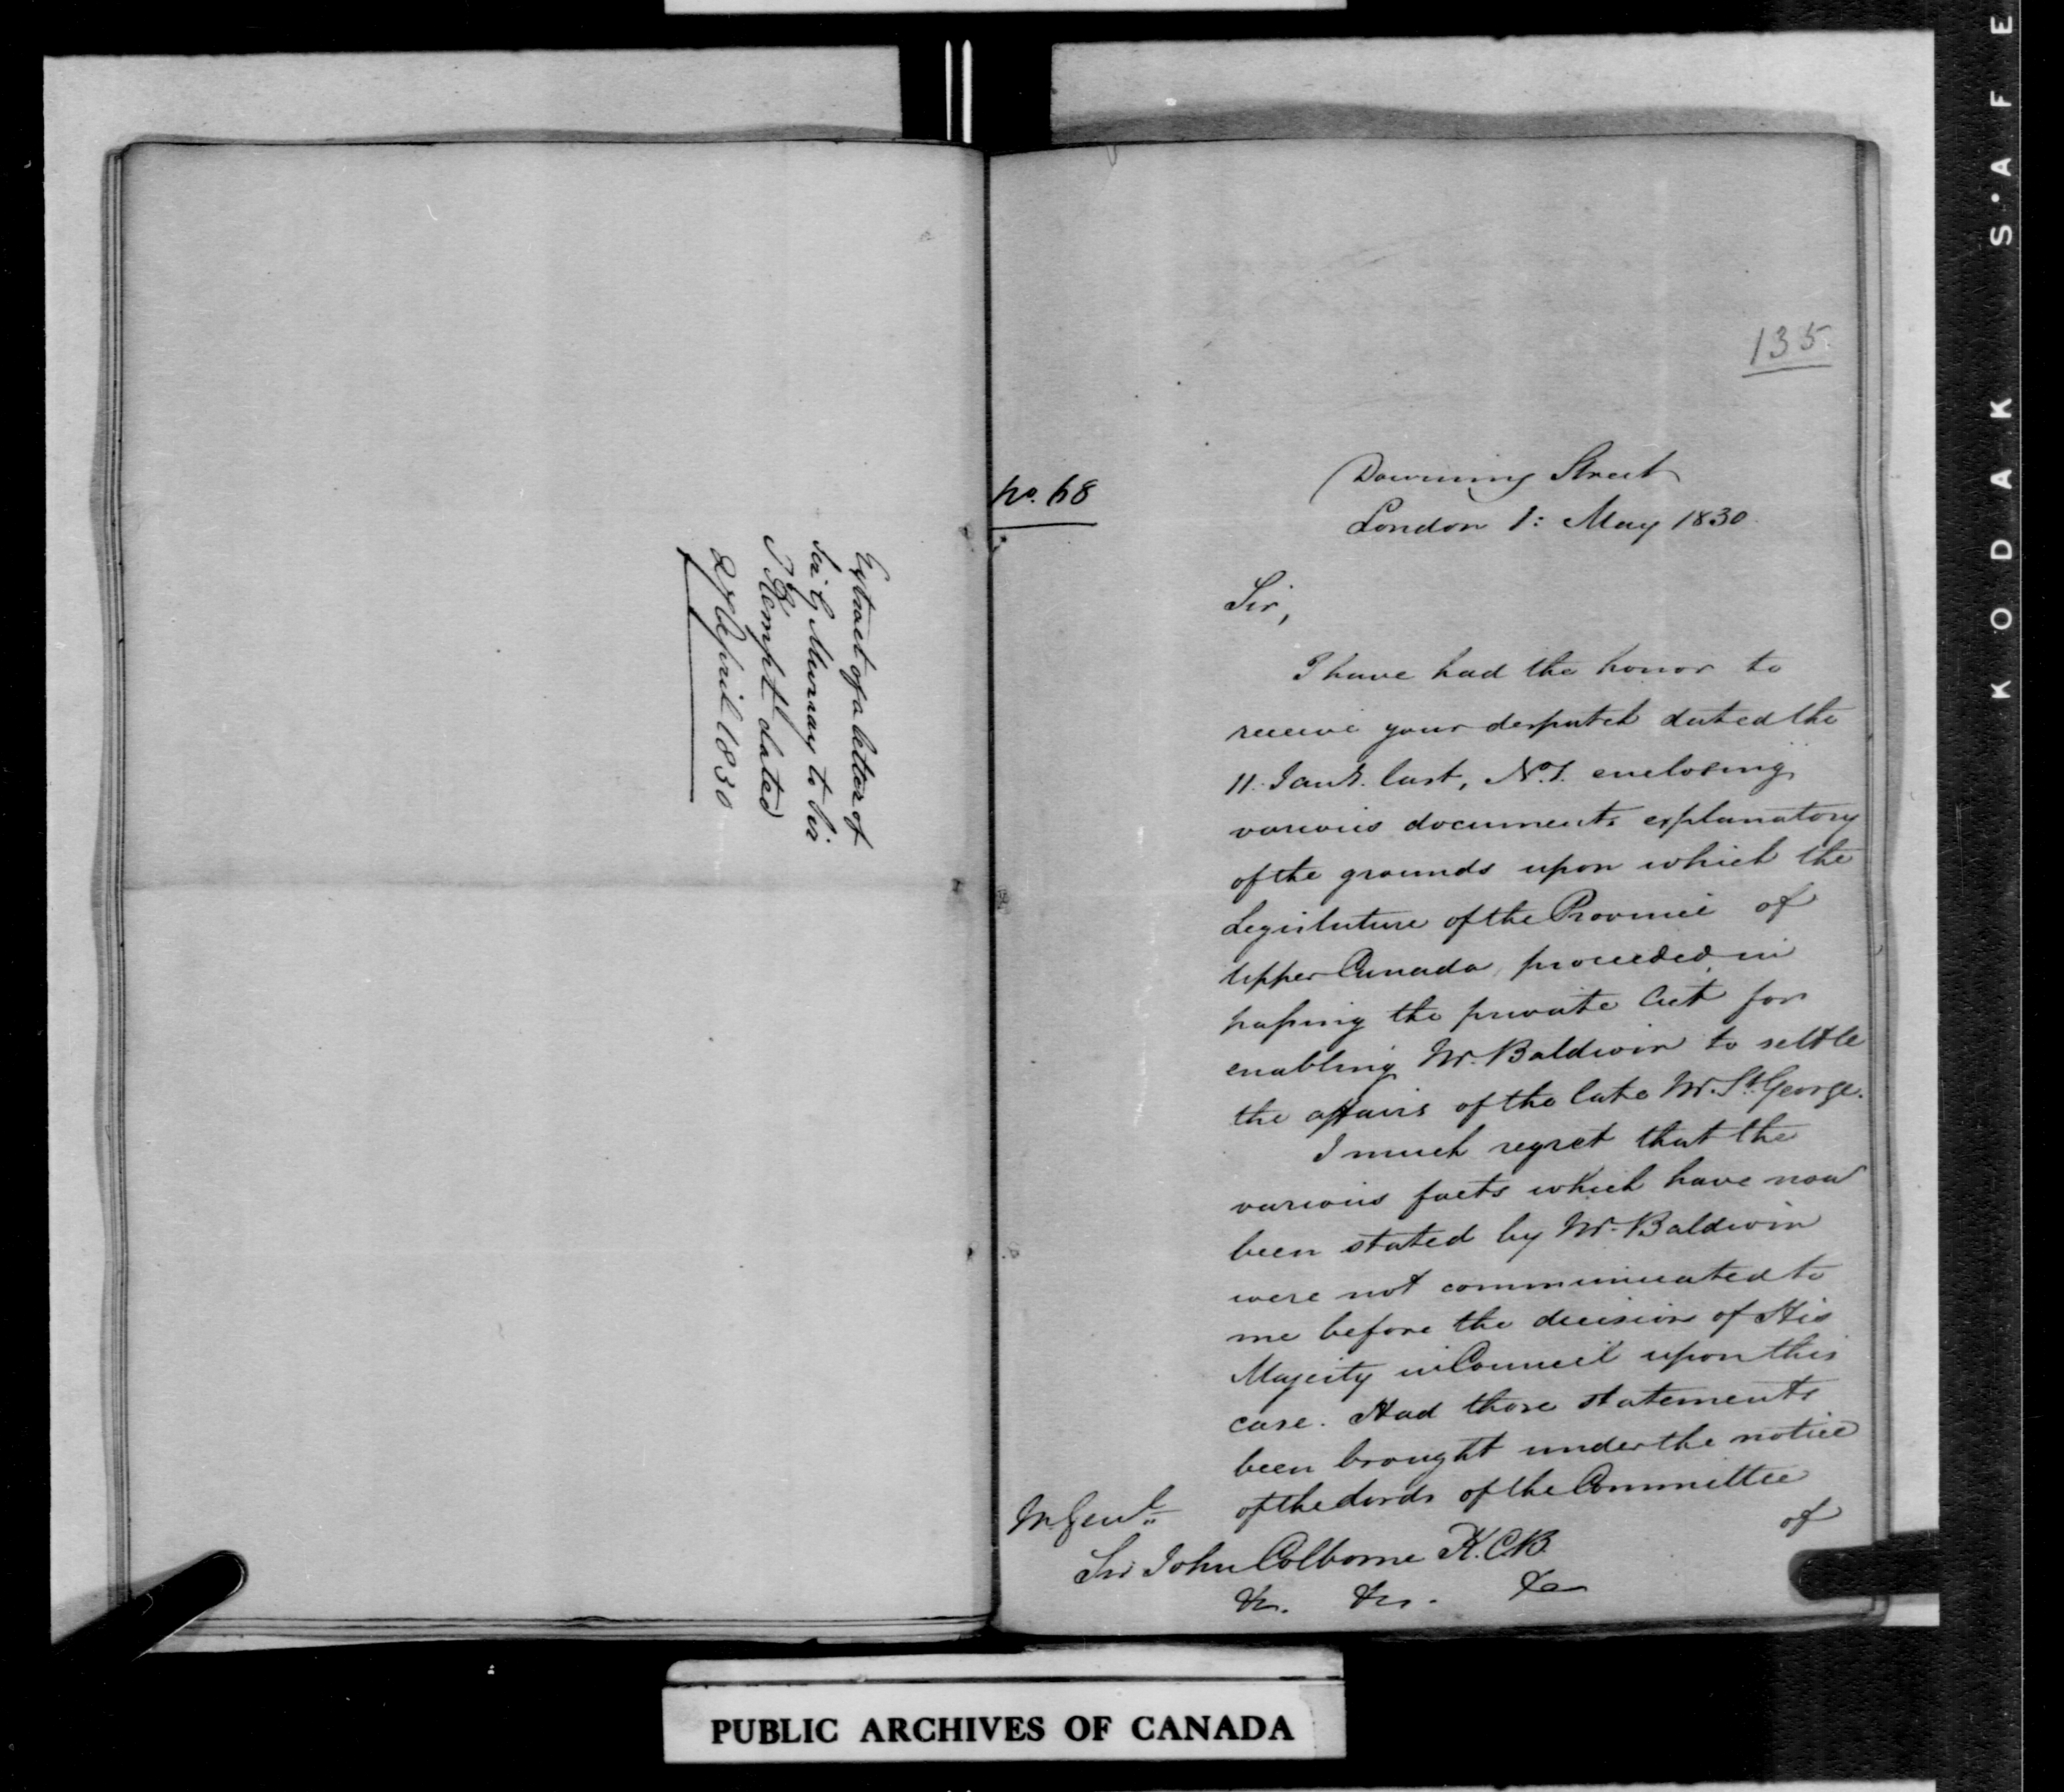 Extract of a letter of
Sir G Murray to Sir
J Kempt dated
27 April 1830
135.
No. 68
Downing Street
London 1: May 1830.
Sir,
I have had the honor to
receive your despatch dated the
11. Jany. last, No. 1. enclosing
various documents explanatory
of the grounds upon which the
Legislature of the Province of
Upper Canada, proceeded in
passing the private Act for
enabling Mr. Baldwin to settle
the affairs of the late Mr. St. George.
I much regret that the
various facts which have now
been stated by Mr. Baldwin
were not communicated to
me before the decision of His
Majesty in Council upon this
case. Had those statements
been brought under the notice
of the Lords of the Committee
of
M. Genl.
Sir John Colborne K.C.B.
&c. &c. &c
PUBLIC ARCHIVES OF CANADA
KODAK S·AFE